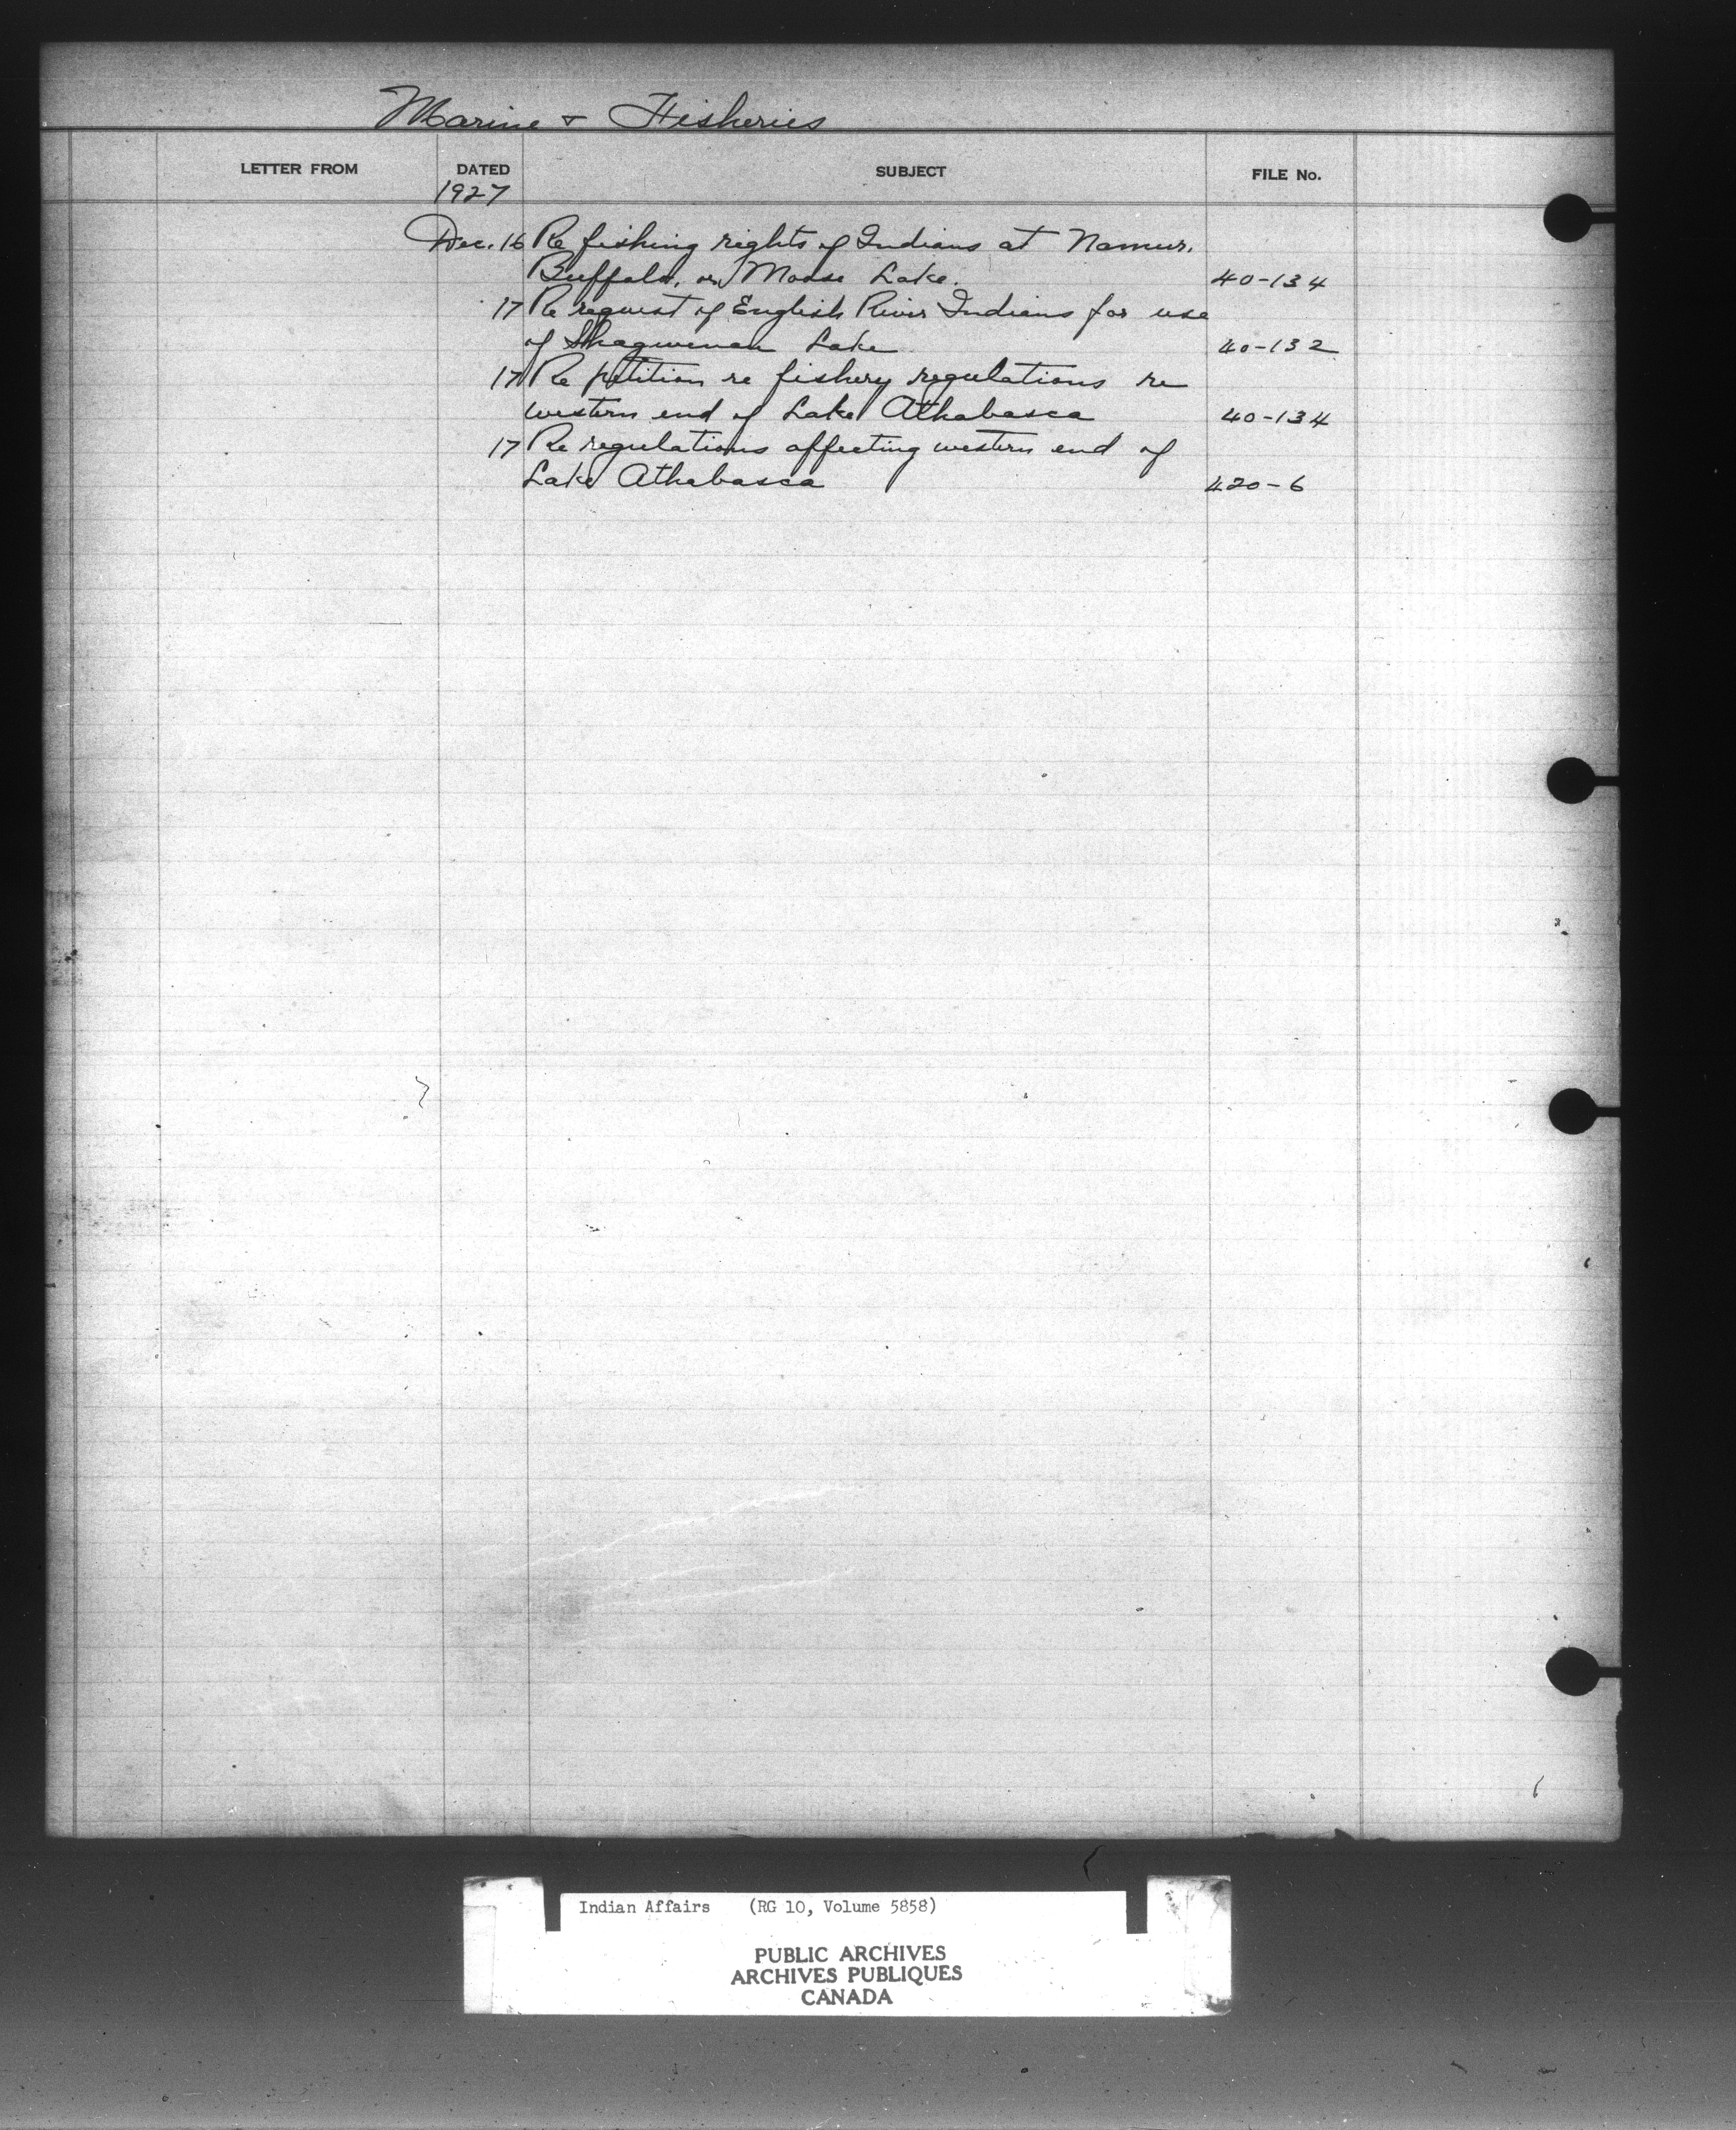 Marine & Fisheries
LETTER FROM DATED SUBJECT FILE No.
1927
Dec. 16 Re fishing rights of Indians at Namur,
Buffalo, or Moose Lake. 40-134
17 Re request of English River Indians for use
of Shagwenah Lake 40-132
17 Re petition re fishery regulations re
western end of Lake Athabasca 40-134
17 Re regulations affecting western end of
Lake Athabasca 420-6
Indian Affairs (RG 10, Volume 5858)
PUBLIC ARCHIVES
ARCHIVES PUBLIQUES
CANADA